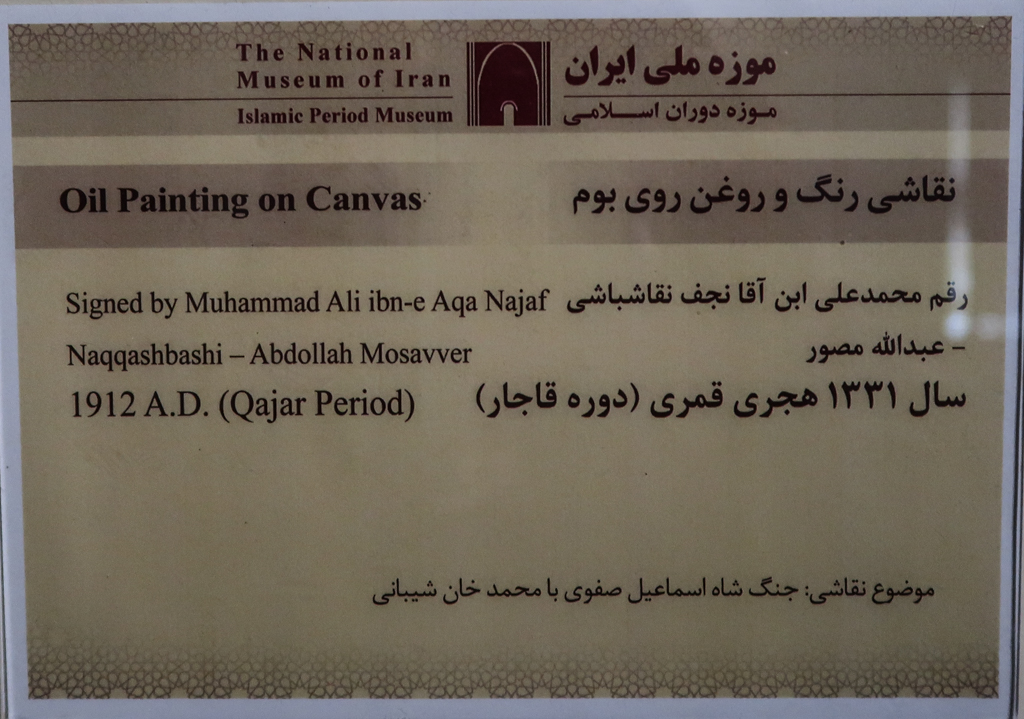 The National
Museum of Iran
Islamic Period Museum
موزه ملی ایران
موزه دوران اسلامی
Oil Painting on Canvas
نقاشی رنگ و روغن روی بوم
Signed by Muhammad Ali ibn-e Aqa Najaf
رقم محمدعلی ابن آقا نجف نقاشباشی
Naqqashbashi – Abdollah Mosavver
- عبدالله مصور
1912 A.D. (Qajar Period)
سال ۱۳۳۱ هجری قمری (دوره قاجار)
موضوع نقاشی: جنگ شاه اسماعیل صفوی با محمد خان شیبانی